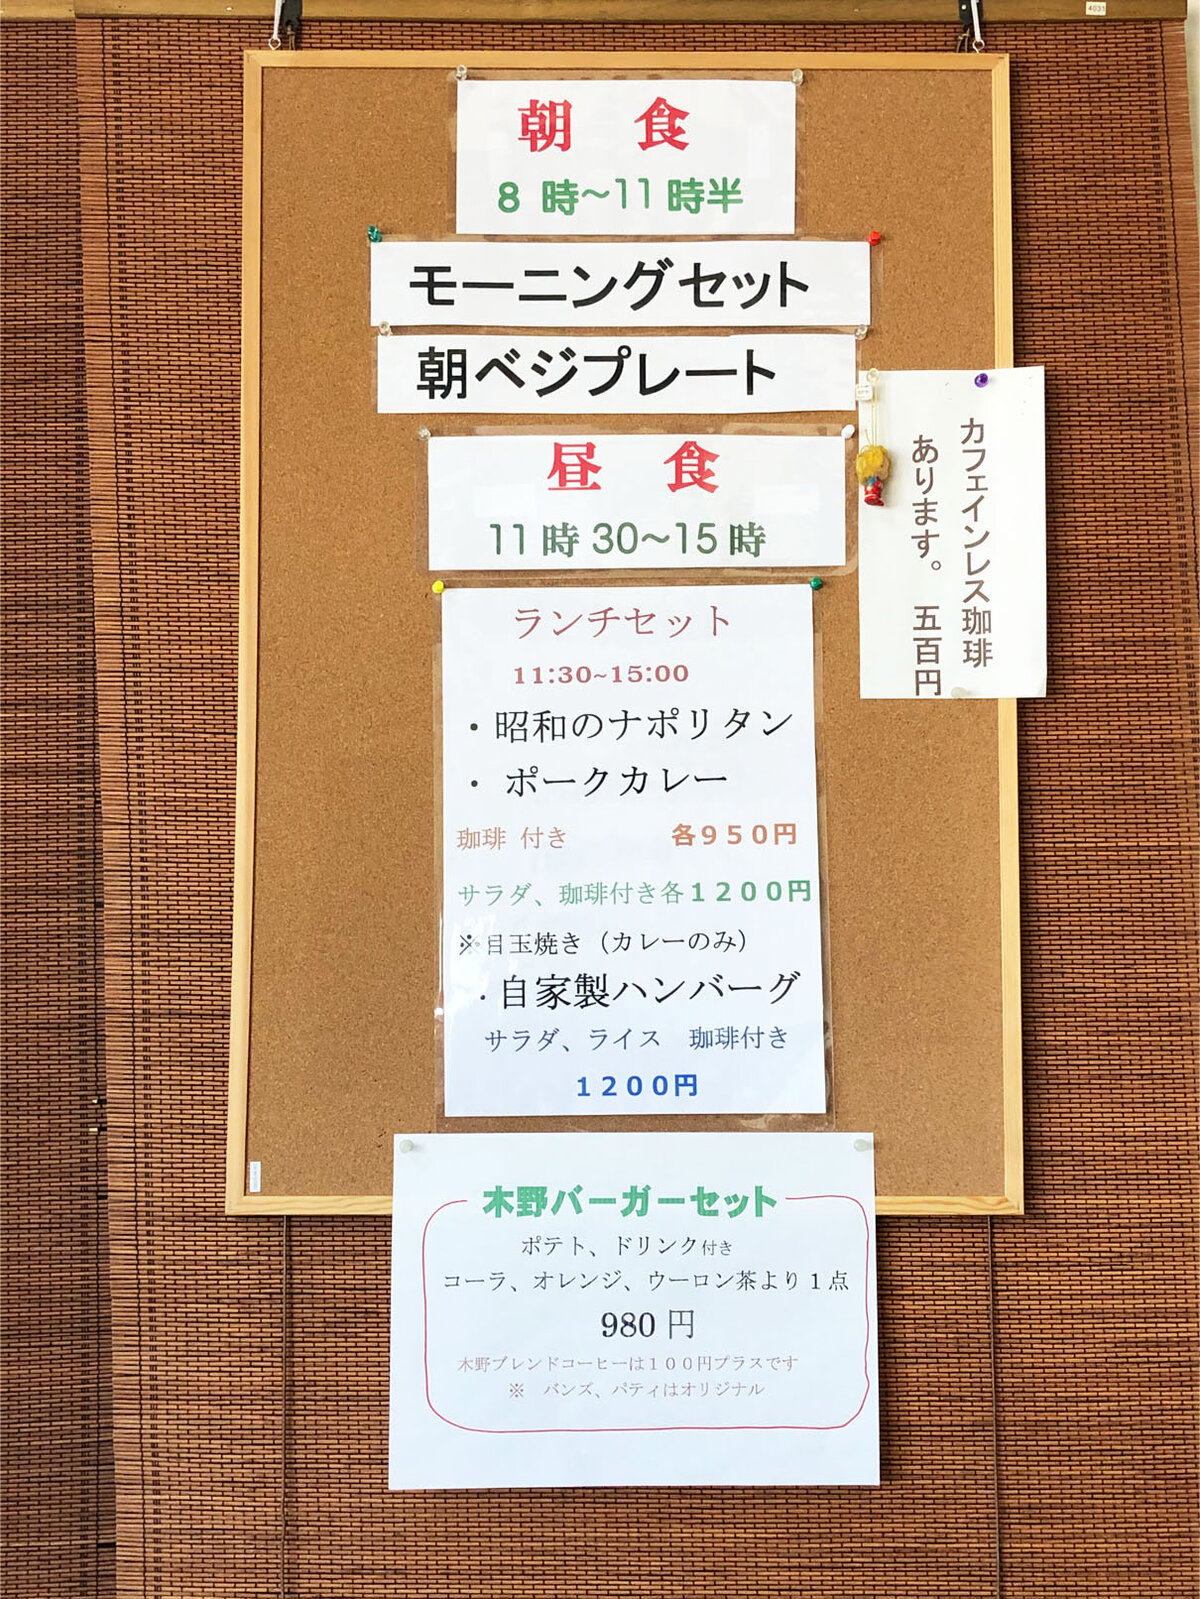 4031
朝 食
8 時～11 時半
モーニングセット
朝ベジプレート
昼 食
11 時 30～15 時
カフェインレス珈琲
あります。 五百円
ランチセット
11:30~15:00
・昭和のナポリタン
・ ポークカレー
珈琲 付き 各９５０円
サラダ、珈琲付き各１２００円
※目玉焼き（カレーのみ）
・自家製ハンバーグ
サラダ、ライス 珈琲付き
１２００円
木野バーガーセット
ポテト、ドリンク付き
コーラ、オレンジ、ウーロン茶より１点
980 円
木野ブレンドコーヒーは１００円プラスです
※ バンズ、パティはオリジナル